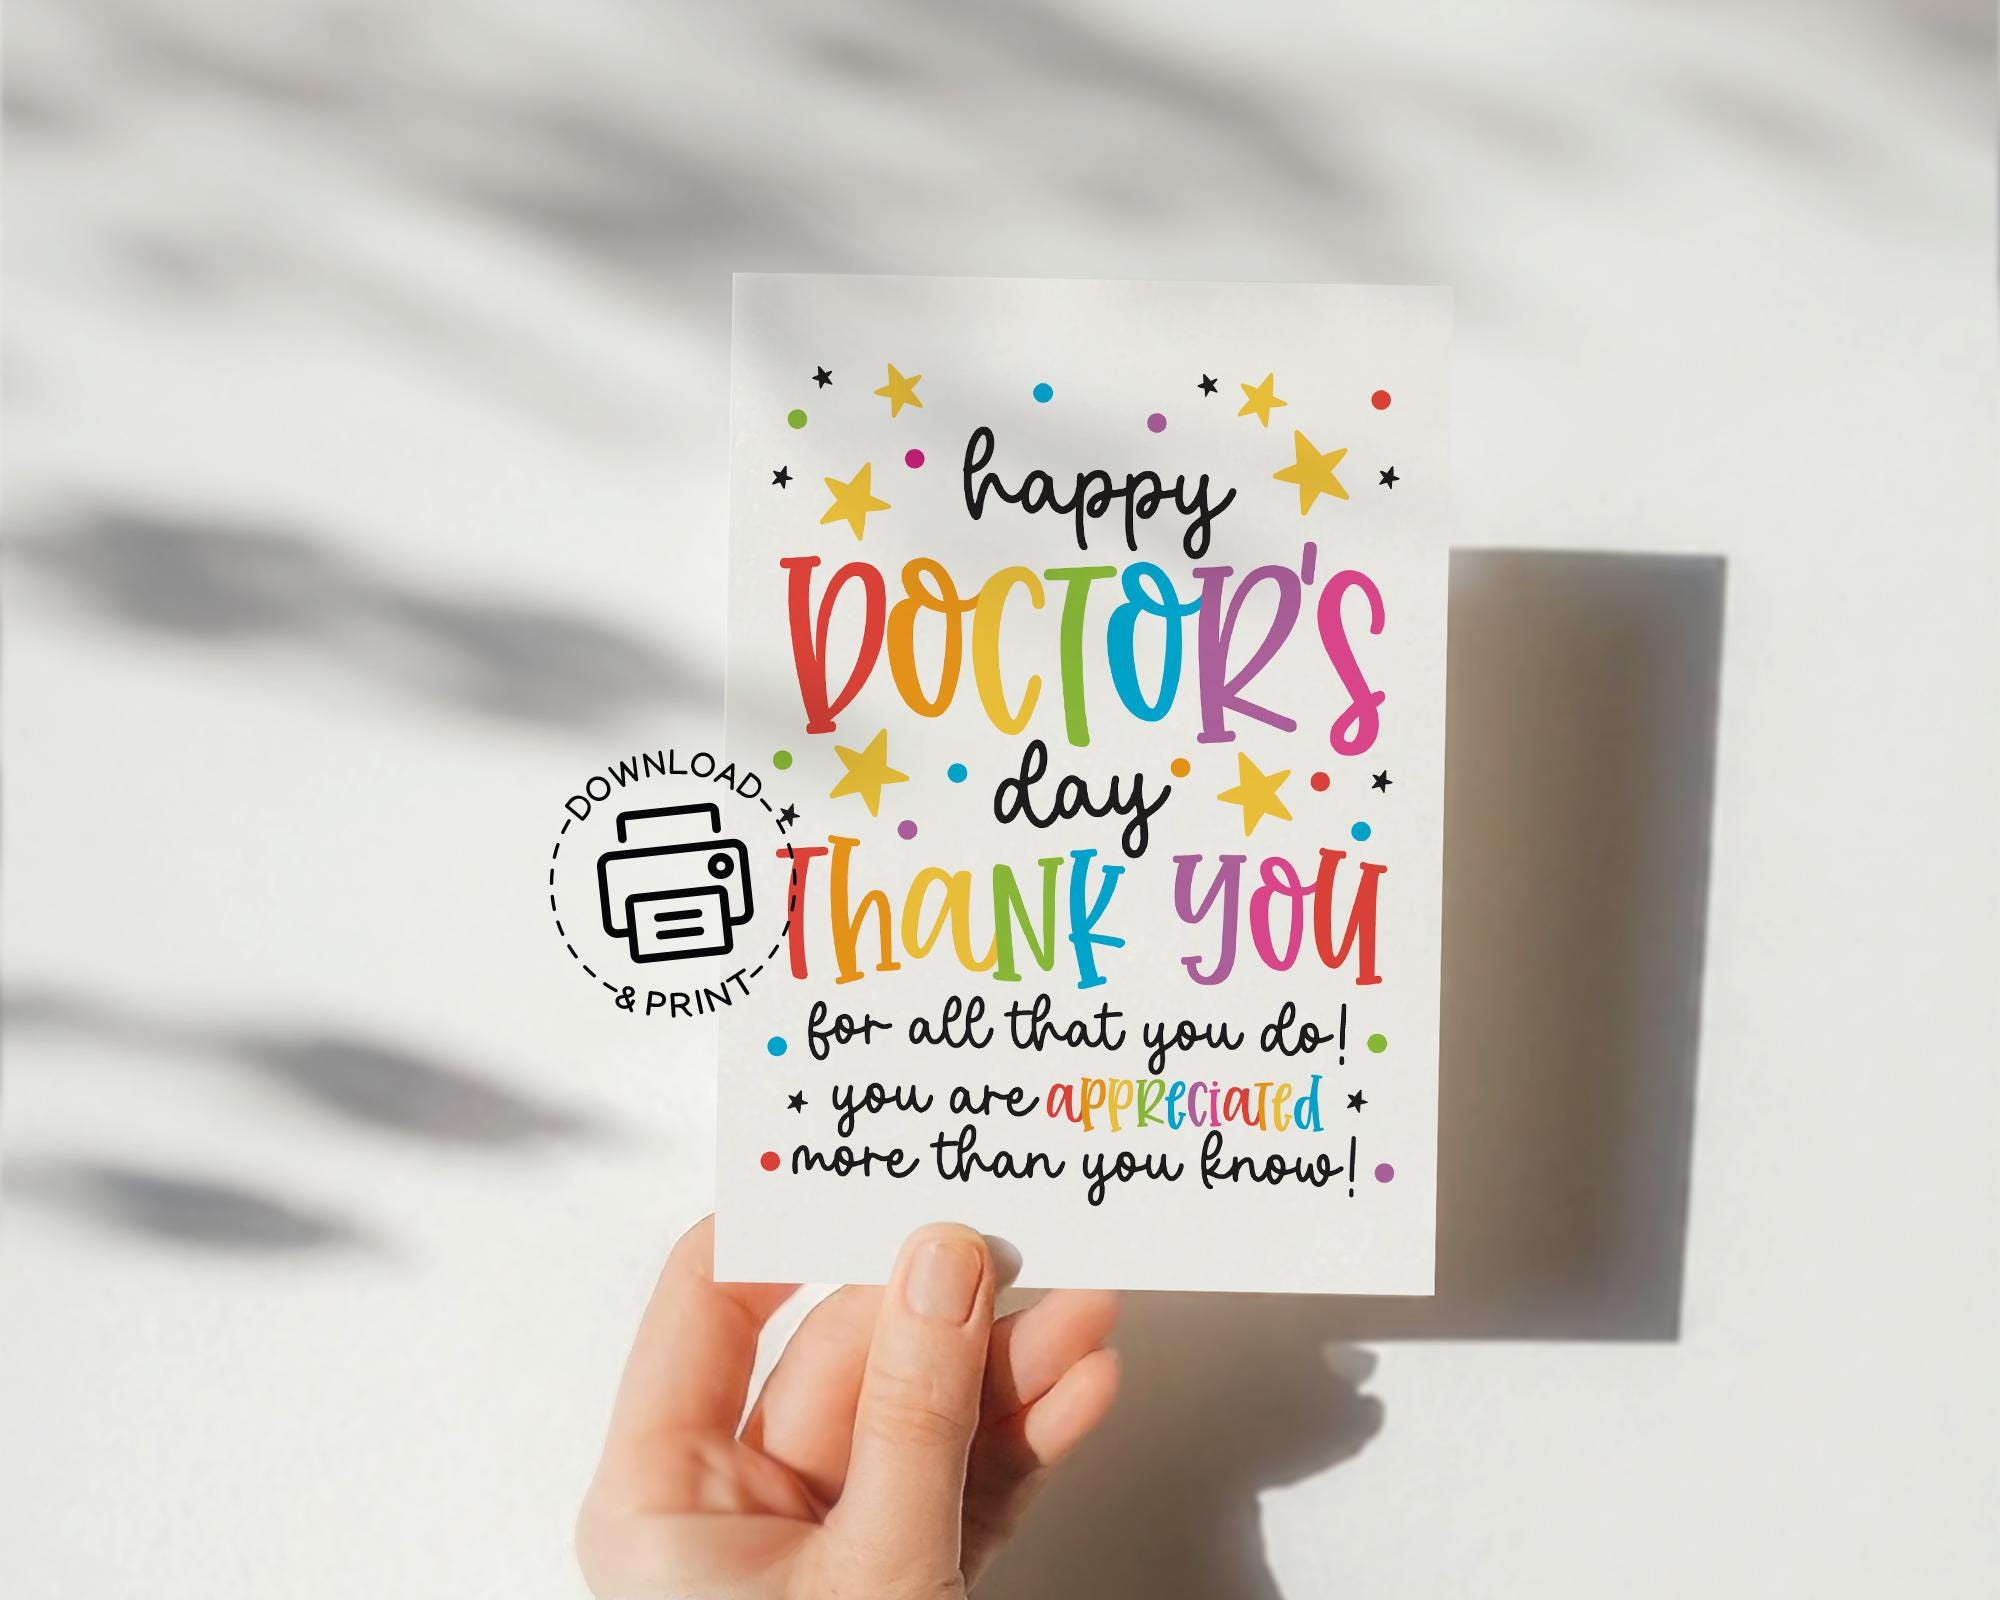 happy
DOCTOR'S
day
Thank you
for all that you do!
you are appreciated
more than you know!
DOWNLOAD
& PRINT